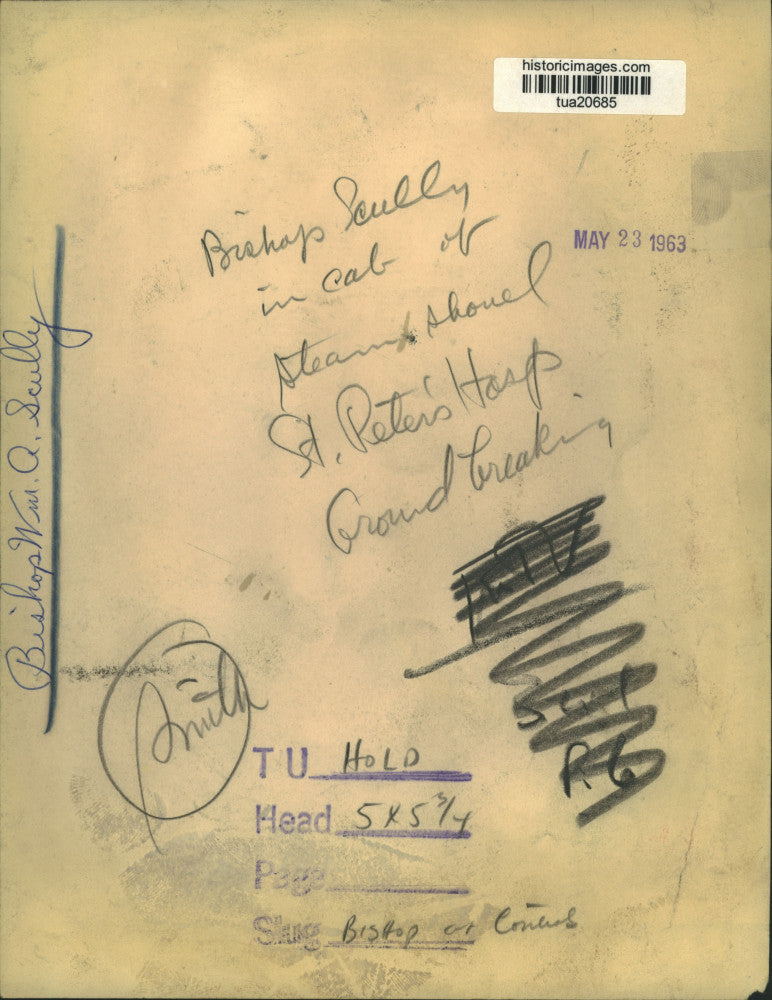 historicimages.com
tua20685
MAY 23 1963
Bishop Scully
in cab of
steam shovel
St. Peter's Hosp
Ground breaking
Bishop Wm. A. Scully
Smith
TU HOLD
Head 5 x 5 3/4
Page
Slug Bishop at Controls
P. 6